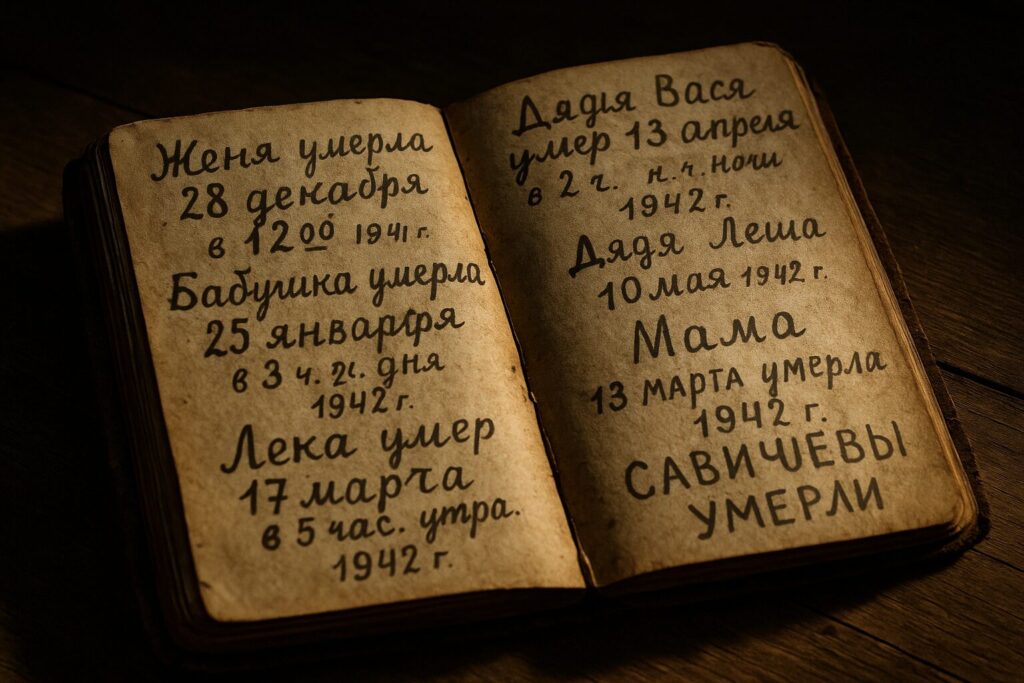 Женя умерла
28 декабря
в 12 00 1941 г.
Бабушка умерла
25 январяря
в 3 ч. 21. дня
1942 г.
Лека умер
17 марча
в 5 час. утра.
1942 г.
Дядия Вася
умер 13 апреля
в 2 г. н. ч. ночи
1942 г.
Дядя Леша
10 мая 1942 г.
Мама
13 МАРТА умерла
1942 г.
САВИЧЕВЫ
УМЕРЛИ